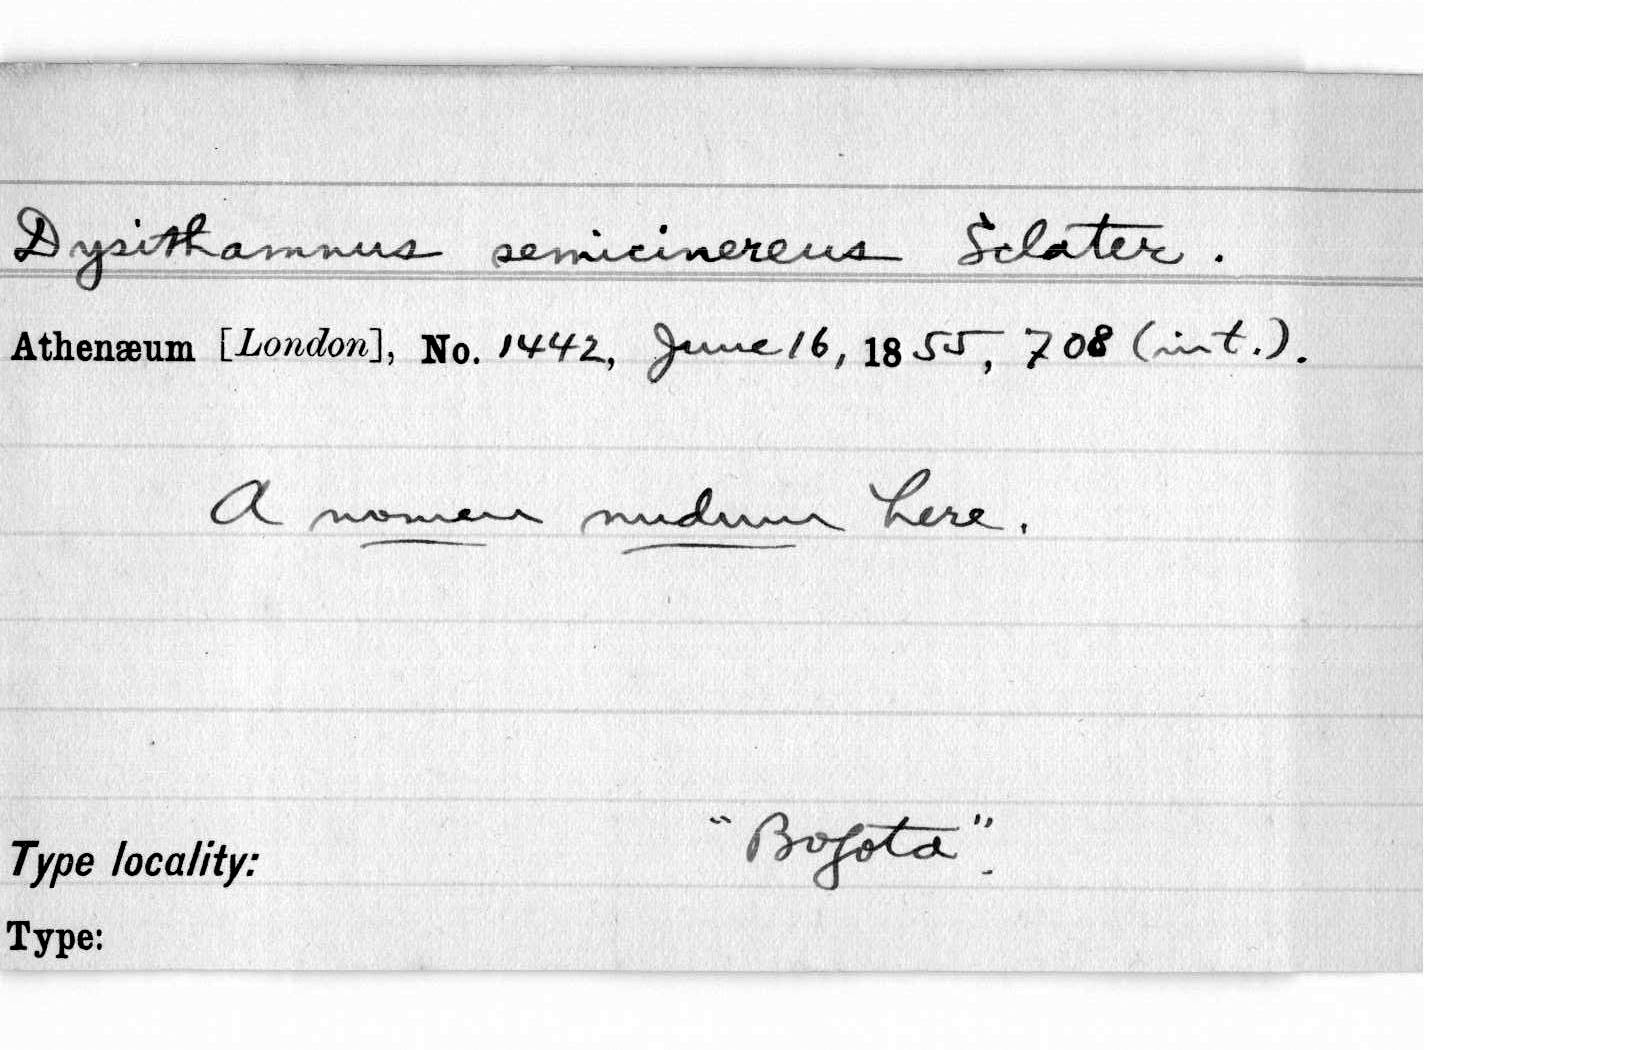 Dysithamnus semicinereus Sclater.
Athenæum [London], No. 1442, June 16, 1855, 708 (int.).
A nomen nudum here.
Type locality: "Bogota".
Type: